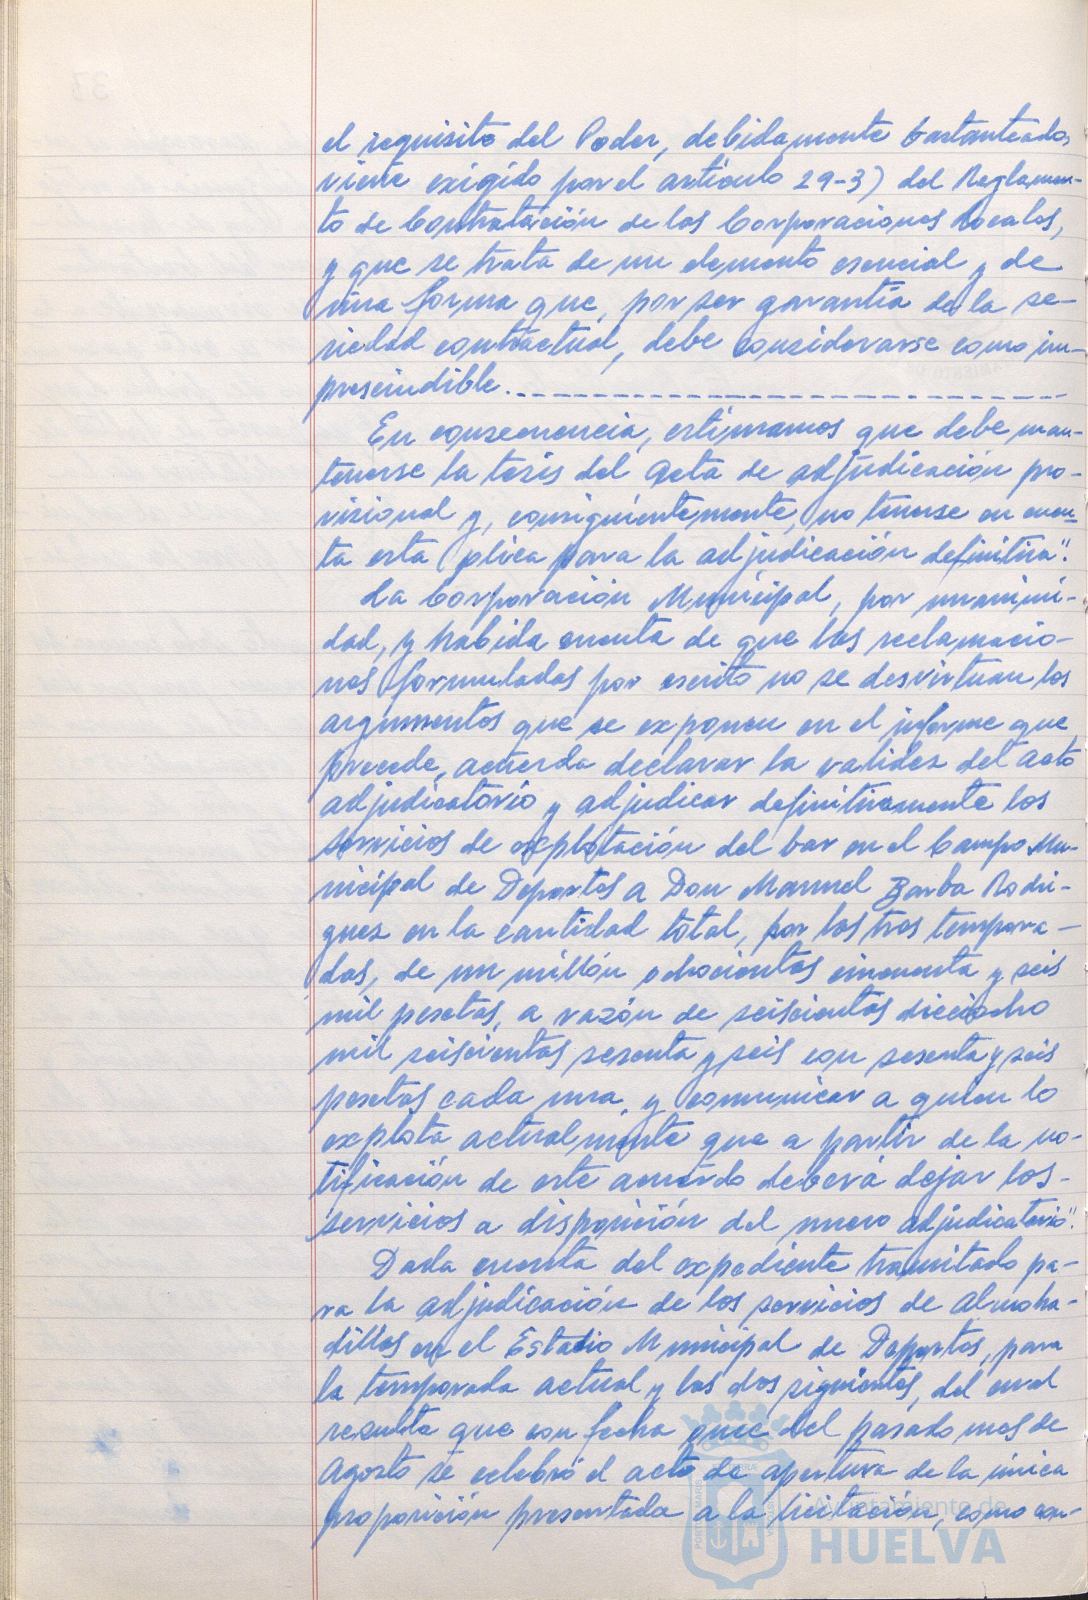 el requisito del Poder, debidamente bastanteado,
viene exigido por el artículo 29-3) del Reglamen-
to de Contratación de las Corporaciones Locales,
y que se trata de un elemento esencial y de
una forma que, por ser garantía de la se-
riedad contractual, debe considerarse como im-
prescindible.
En consecuencia, estimamos que debe man-
tenerse la tesis del acta de adjudicación pro-
visional y, consiguientemente, no tenerse en cuen-
ta esta plica para la adjudicación definitiva".
La Corporación Municipal, por unanimi-
dad, y habida cuenta de que las reclamacio-
nes formuladas por escrito no se desvirtuan los
argumentos que se exponen en el informe que
precede, acuerda declarar la validez del acto
adjudicatorio y adjudicar definitivamente los
servicios de explotación del bar en el Campo Mu-
nicipal de Deportes a Don Manuel Barba Rodrí-
guez en la cantidad total, por las tres tempora-
das, de un millón ochocientas cincuenta y seis
mil pesetas, a razón de seiscientas dieciocho
mil seiscientas sesenta y seis con sesenta y seis
pesetas cada una, y comunicar a quien lo
explota actualmente que a partir de la no-
tificación de este acuerdo deberá dejar los-
servicios a disposición del nuevo adjudicatario".
Dada cuenta del expediente tramitado pa-
ra la adjudicación de los servicios de almoha-
dillas en el Estadio Municipal de Deportes, para
la temporada actual y las dos siguientes, del cual
resulta que con fecha once del pasado mes de
Agosto se celebró el acto de apertura de la única
proposición presentada a la licitación, como con-
Ayuntamiento de
HUELVA